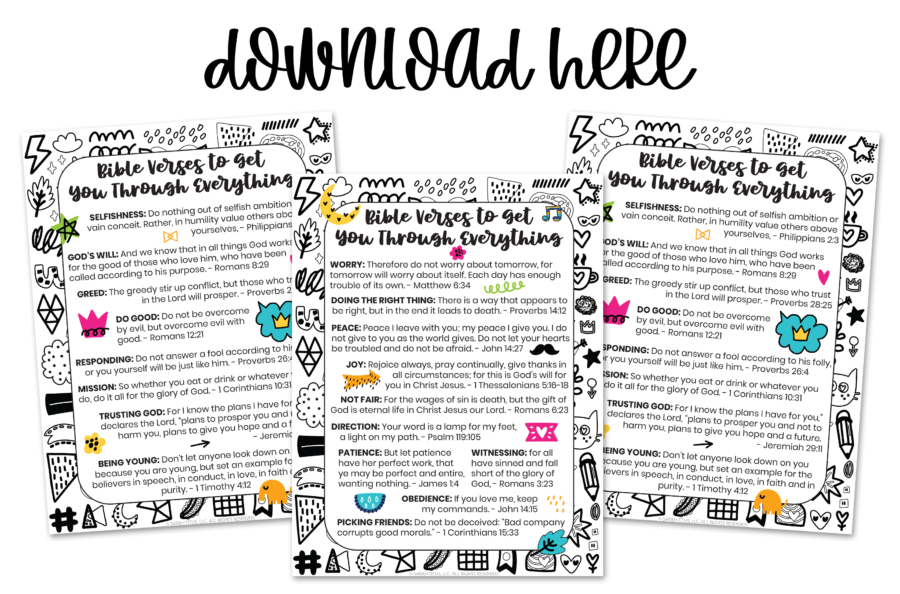 download here
Bible Verses to Get
You Through Everything
SELFISHNESS: Do nothing out of selfish ambition
vain conceit. Rather, in humility value others
yourselves, - Philippians
GOD'S WILL: And we know that in all things God works
for the good of those who love him, who have been
called according to his purpose. - Romans 8:29
GREED: The greedy stir up conflict, but those who
in the Lord will prosper. - Proverbs
DO GOOD: Do not be overcome
by evil, but overcome evil with
good. - Romans 12:21
RESPONDING: Do not answer a fool according to his
or you yourself will be just like him. - Proverbs 26:4
MISSION: So whether you eat or drink or whatever
do, do it all for the glory of God. - 1 Corinthians 10:31
TRUSTING GOD: For I know the plans I have for
declares the Lord, "plans to prosper you and
harm you, plans to give you hope and a
- Jeremiah
BEING YOUNG: Don't let anyone look down on
because you are young, but set an example for the
believers in speech, in conduct, in love, in faith
purity. - 1 Timothy 4:12
Bible Verses to Get
You Through Everything
WORRY: Therefore do not worry about tomorrow, for
tomorrow will worry about itself. Each day has enough
trouble of its own. - Matthew 6:34
DOING THE RIGHT THING: There is a way that appears to
be right, but in the end it leads to death. - Proverbs 14:12
PEACE: Peace I leave with you; my peace I give you. I do
not give to you as the world gives. Do not let your hearts
be troubled and do not be afraid. - John 14:27
JOY: Rejoice always, pray continually, give thanks in
all circumstances; for this is God's will for
you in Christ Jesus. - 1 Thessalonians 5:16-18
NOT FAIR: For the wages of sin is death, but the gift of
God is eternal life in Christ Jesus our Lord. - Romans 6:23
DIRECTION: Your word is a lamp for my feet,
a light on my path. - Psalm 119:105
PATIENCE: But let patience
have her perfect work, that
ye may be perfect and entire,
wanting nothing. - James 1:4
WITNESSING: for all
have sinned and fall
short of the glory of
God, - Romans 3:23
OBEDIENCE: If you love me, keep
my commands. - John 14:15
PICKING FRIENDS: Do not be deceived: "Bad company
corrupts good morals." - 1 Corinthians 15:33
© SARAH TITUS, LLC. ALL RIGHTS RESERVED.
Bible Verses to Get
You Through Everything
SELFISHNESS: Do nothing out of selfish ambition or
vain conceit. Rather, in humility value others above
yourselves, - Philippians 2:3
GOD'S WILL: And we know that in all things God works
for the good of those who love him, who have been
called according to his purpose. - Romans 8:29
GREED: The greedy stir up conflict, but those who trust
in the Lord will prosper. - Proverbs 28:25
DO GOOD: Do not be overcome
by evil, but overcome evil with
good. - Romans 12:21
RESPONDING: Do not answer a fool according to his folly,
or you yourself will be just like him. - Proverbs 26:4
MISSION: So whether you eat or drink or whatever you
do, do it all for the glory of God. - 1 Corinthians 10:31
TRUSTING GOD: For I know the plans I have for you,"
declares the Lord, "plans to prosper you and not to
harm you, plans to give you hope and a future.
- Jeremiah 29:11
BEING YOUNG: Don't let anyone look down on you
because you are young, but set an example for the
believers in speech, in conduct, in love, in faith and in
purity. - 1 Timothy 4:12